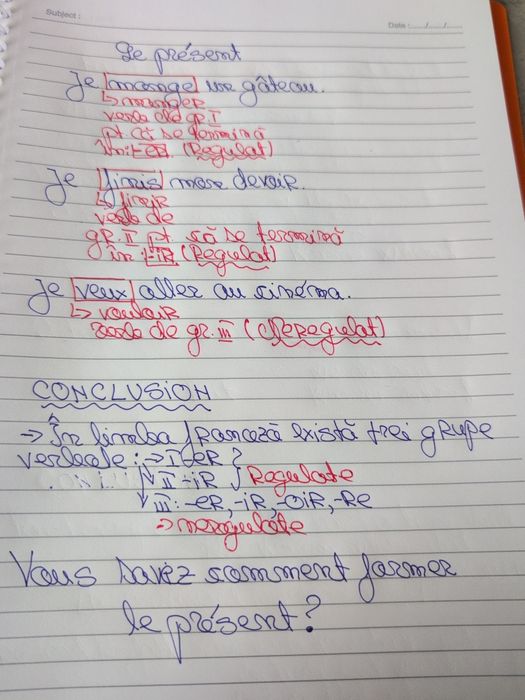 Subject :
Date : / /
Le présent
Je mange un gâteau.
↳ manger
verb de gr. I
pt că se termină
în -er. (Regulat)
Je finis mon devoir.
↳ finir
verb de
gr. II pt să se termină
în -iR (Regulat)
Je veux aller au cinéma.
↳ vouloir
verb de gr. III (Neregulat)
CONCLUSION
→ În limba franceză există trei grupe
verbale : → I -eR } Regulate
II -iR
III : -eR, -iR, -OiR, -Re
→ neregulate
Vous savez comment former
le présent ?